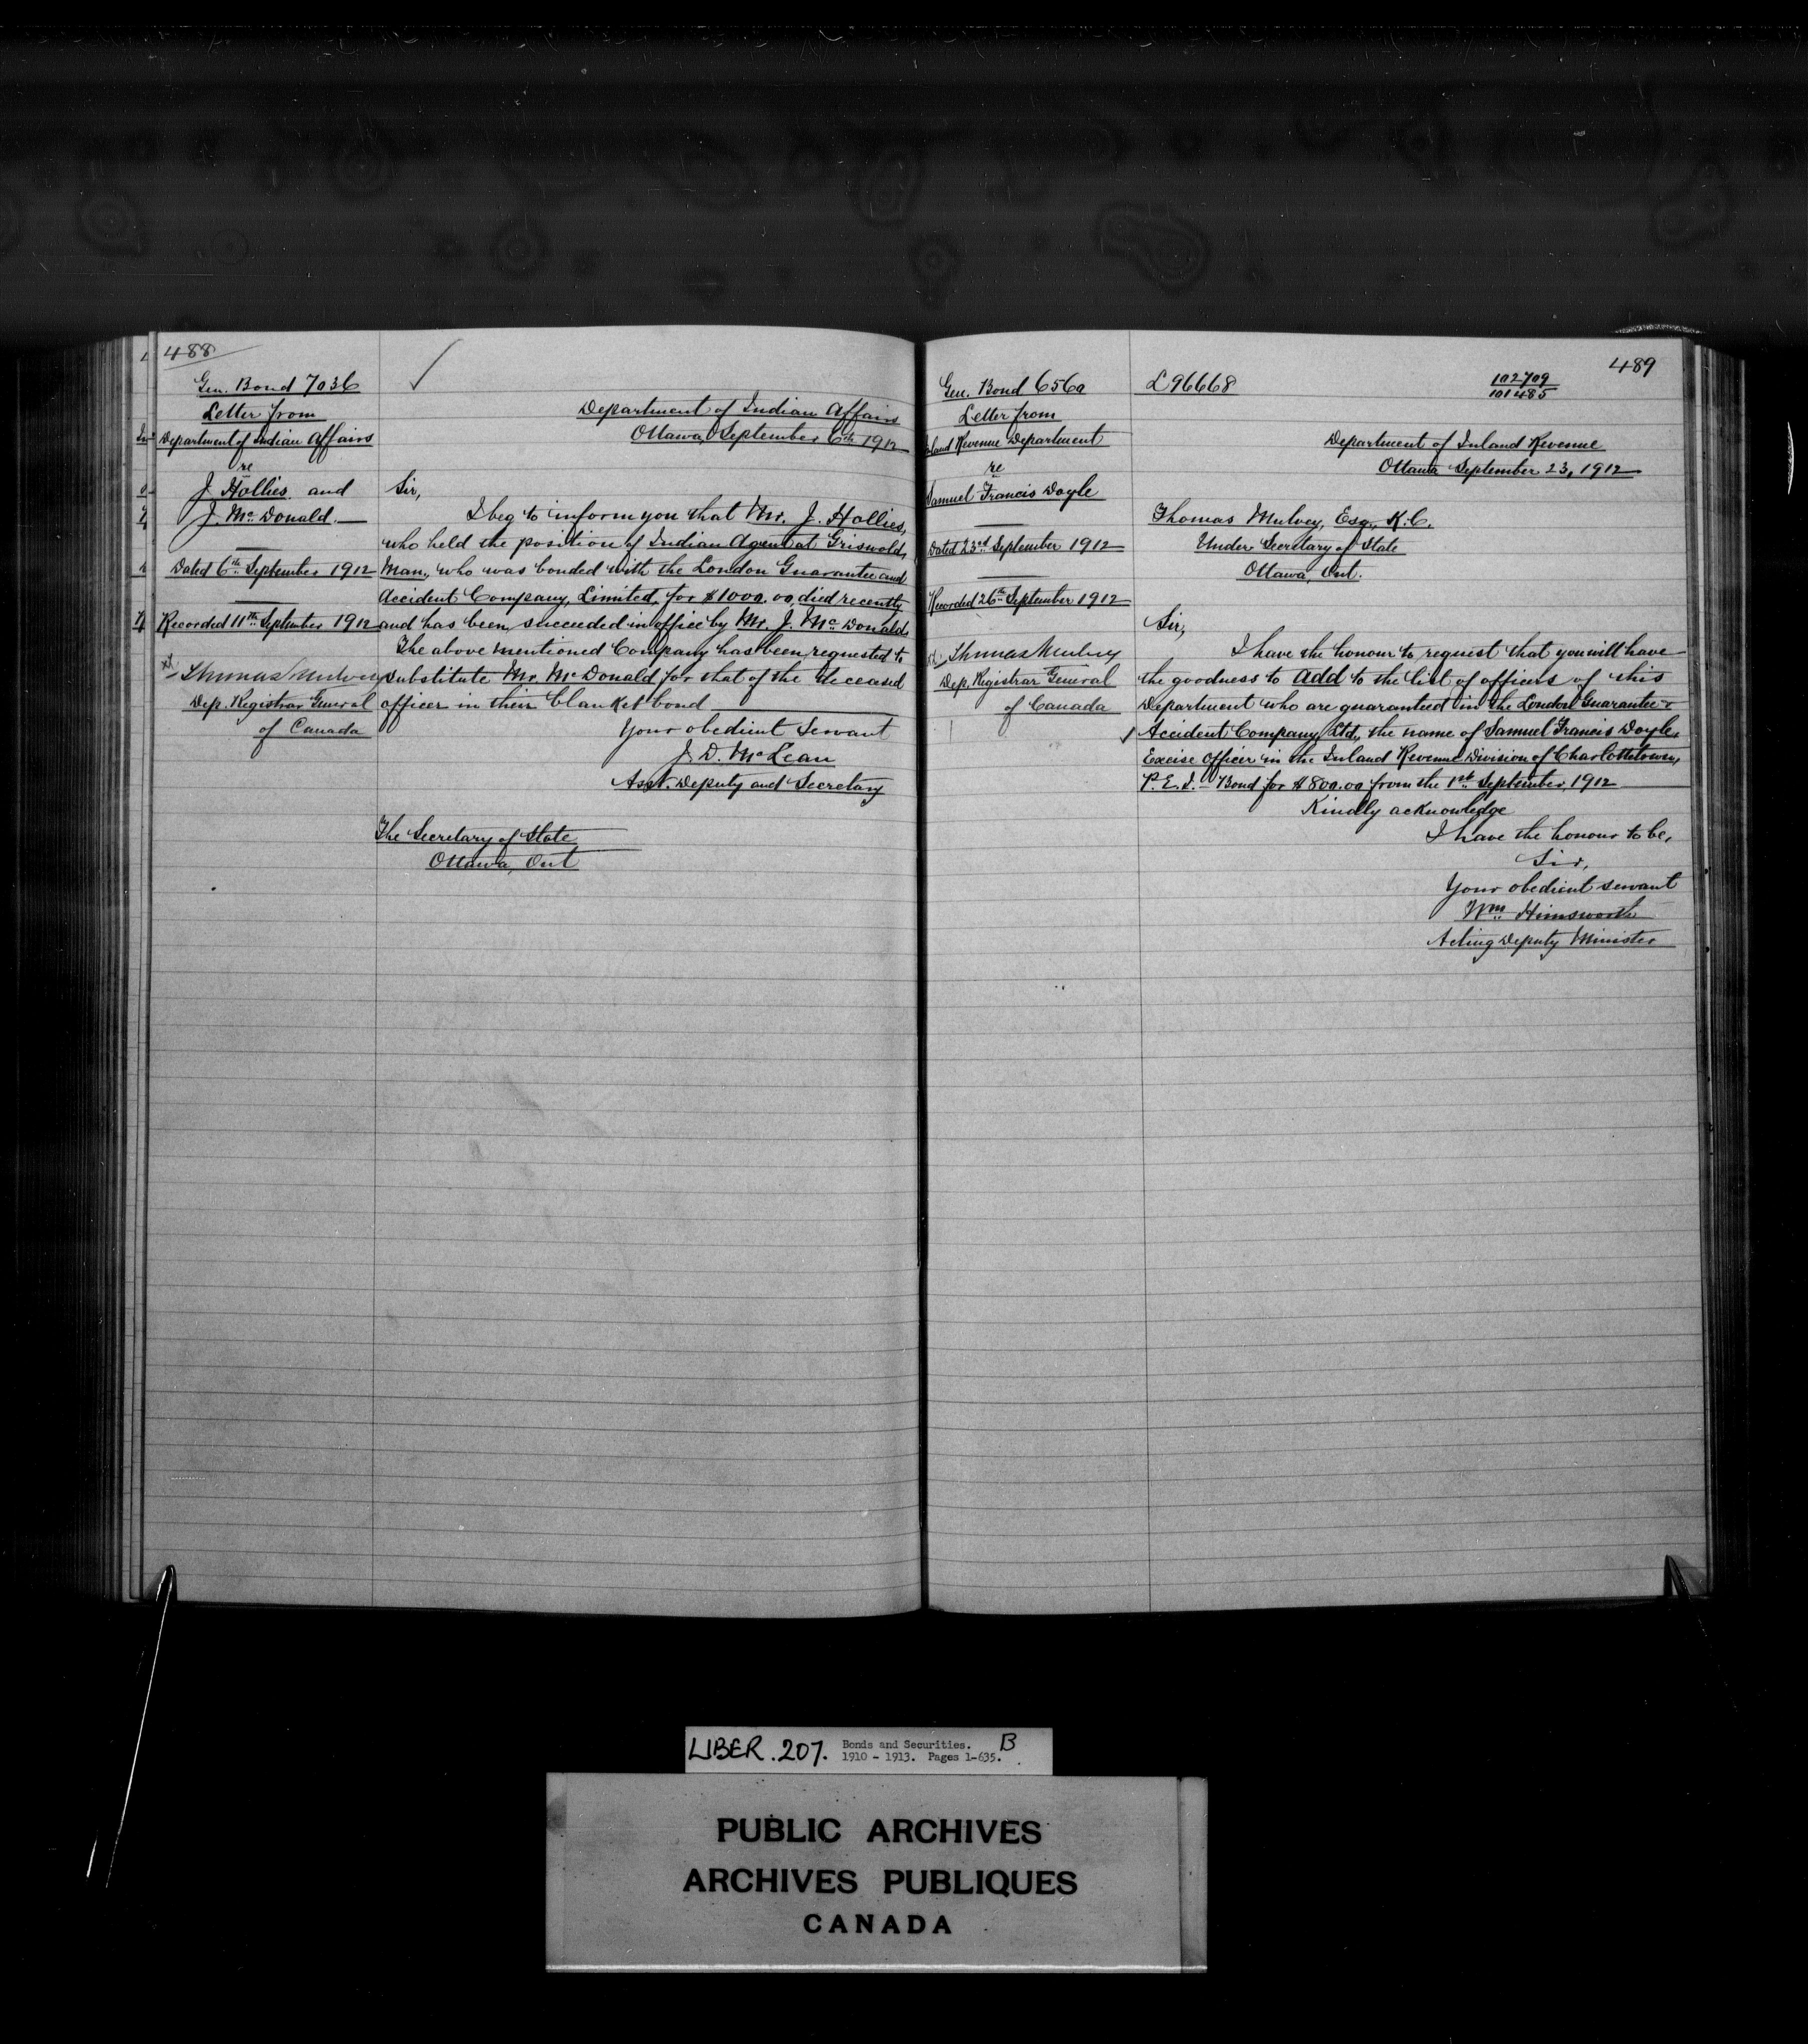 488
Gen. Bond 7036
Letter from
Department of Indian Affairs
re
J. Hollies and
J. McDonald.
Dated 6th September 1912
Recorded 11th September 1912
Thomas Mulvey
Dep. Registrar General
of Canada
Department of Indian Affairs
Ottawa, September 6th 1912
Sir,
I beg to inform you that Mr. J. Hollies,
who held the position of Indian Agent at Griswold,
Man., who was bonded with the London Guarantee and
Accident Company, Limited, for $1000.00, died recently
and has been succeeded in office by Mr. J. McDonald.
The above mentioned Company has been requested to
substitute Mr. McDonald for that of the deceased
officer in their blanket bond
Your obedient Servant
J. D. McLean
Asst. Deputy and Secretary
The Secretary of State
Ottawa, Ont
489
Gen. Bond 6560
Letter from
Inland Revenue Department
re
Samuel Francis Doyle
Dated 23rd September 1912
Recorded 26th September 1912
Thomas Mulvey
Dep. Registrar General
of Canada
L 96668
102709
101485
Department of Inland Revenue
Ottawa September 23, 1912
Thomas Mulvey, Esq., K.C.
Under Secretary of State
Ottawa, Ont.
Sir,
I have the honour to request that you will have
the goodness to add to the list of officers of this
Department who are guaranteed in the London Guarantee &
Accident Company, Ltd., the name of Samuel Francis Doyle,
Excise Officer in the Inland Revenue Division of Charlottetown,
P.E.I. Bond for $800.00 from the 1st September, 1912
Kindly acknowledge
I have the honour to be,
Sir,
Your obedient servant
Wm Himsworth
Acting Deputy Minister
LIBER. 207. Bonds and Securities. B
1910 - 1913. Pages 1-635.
PUBLIC ARCHIVES
ARCHIVES PUBLIQUES
CANADA